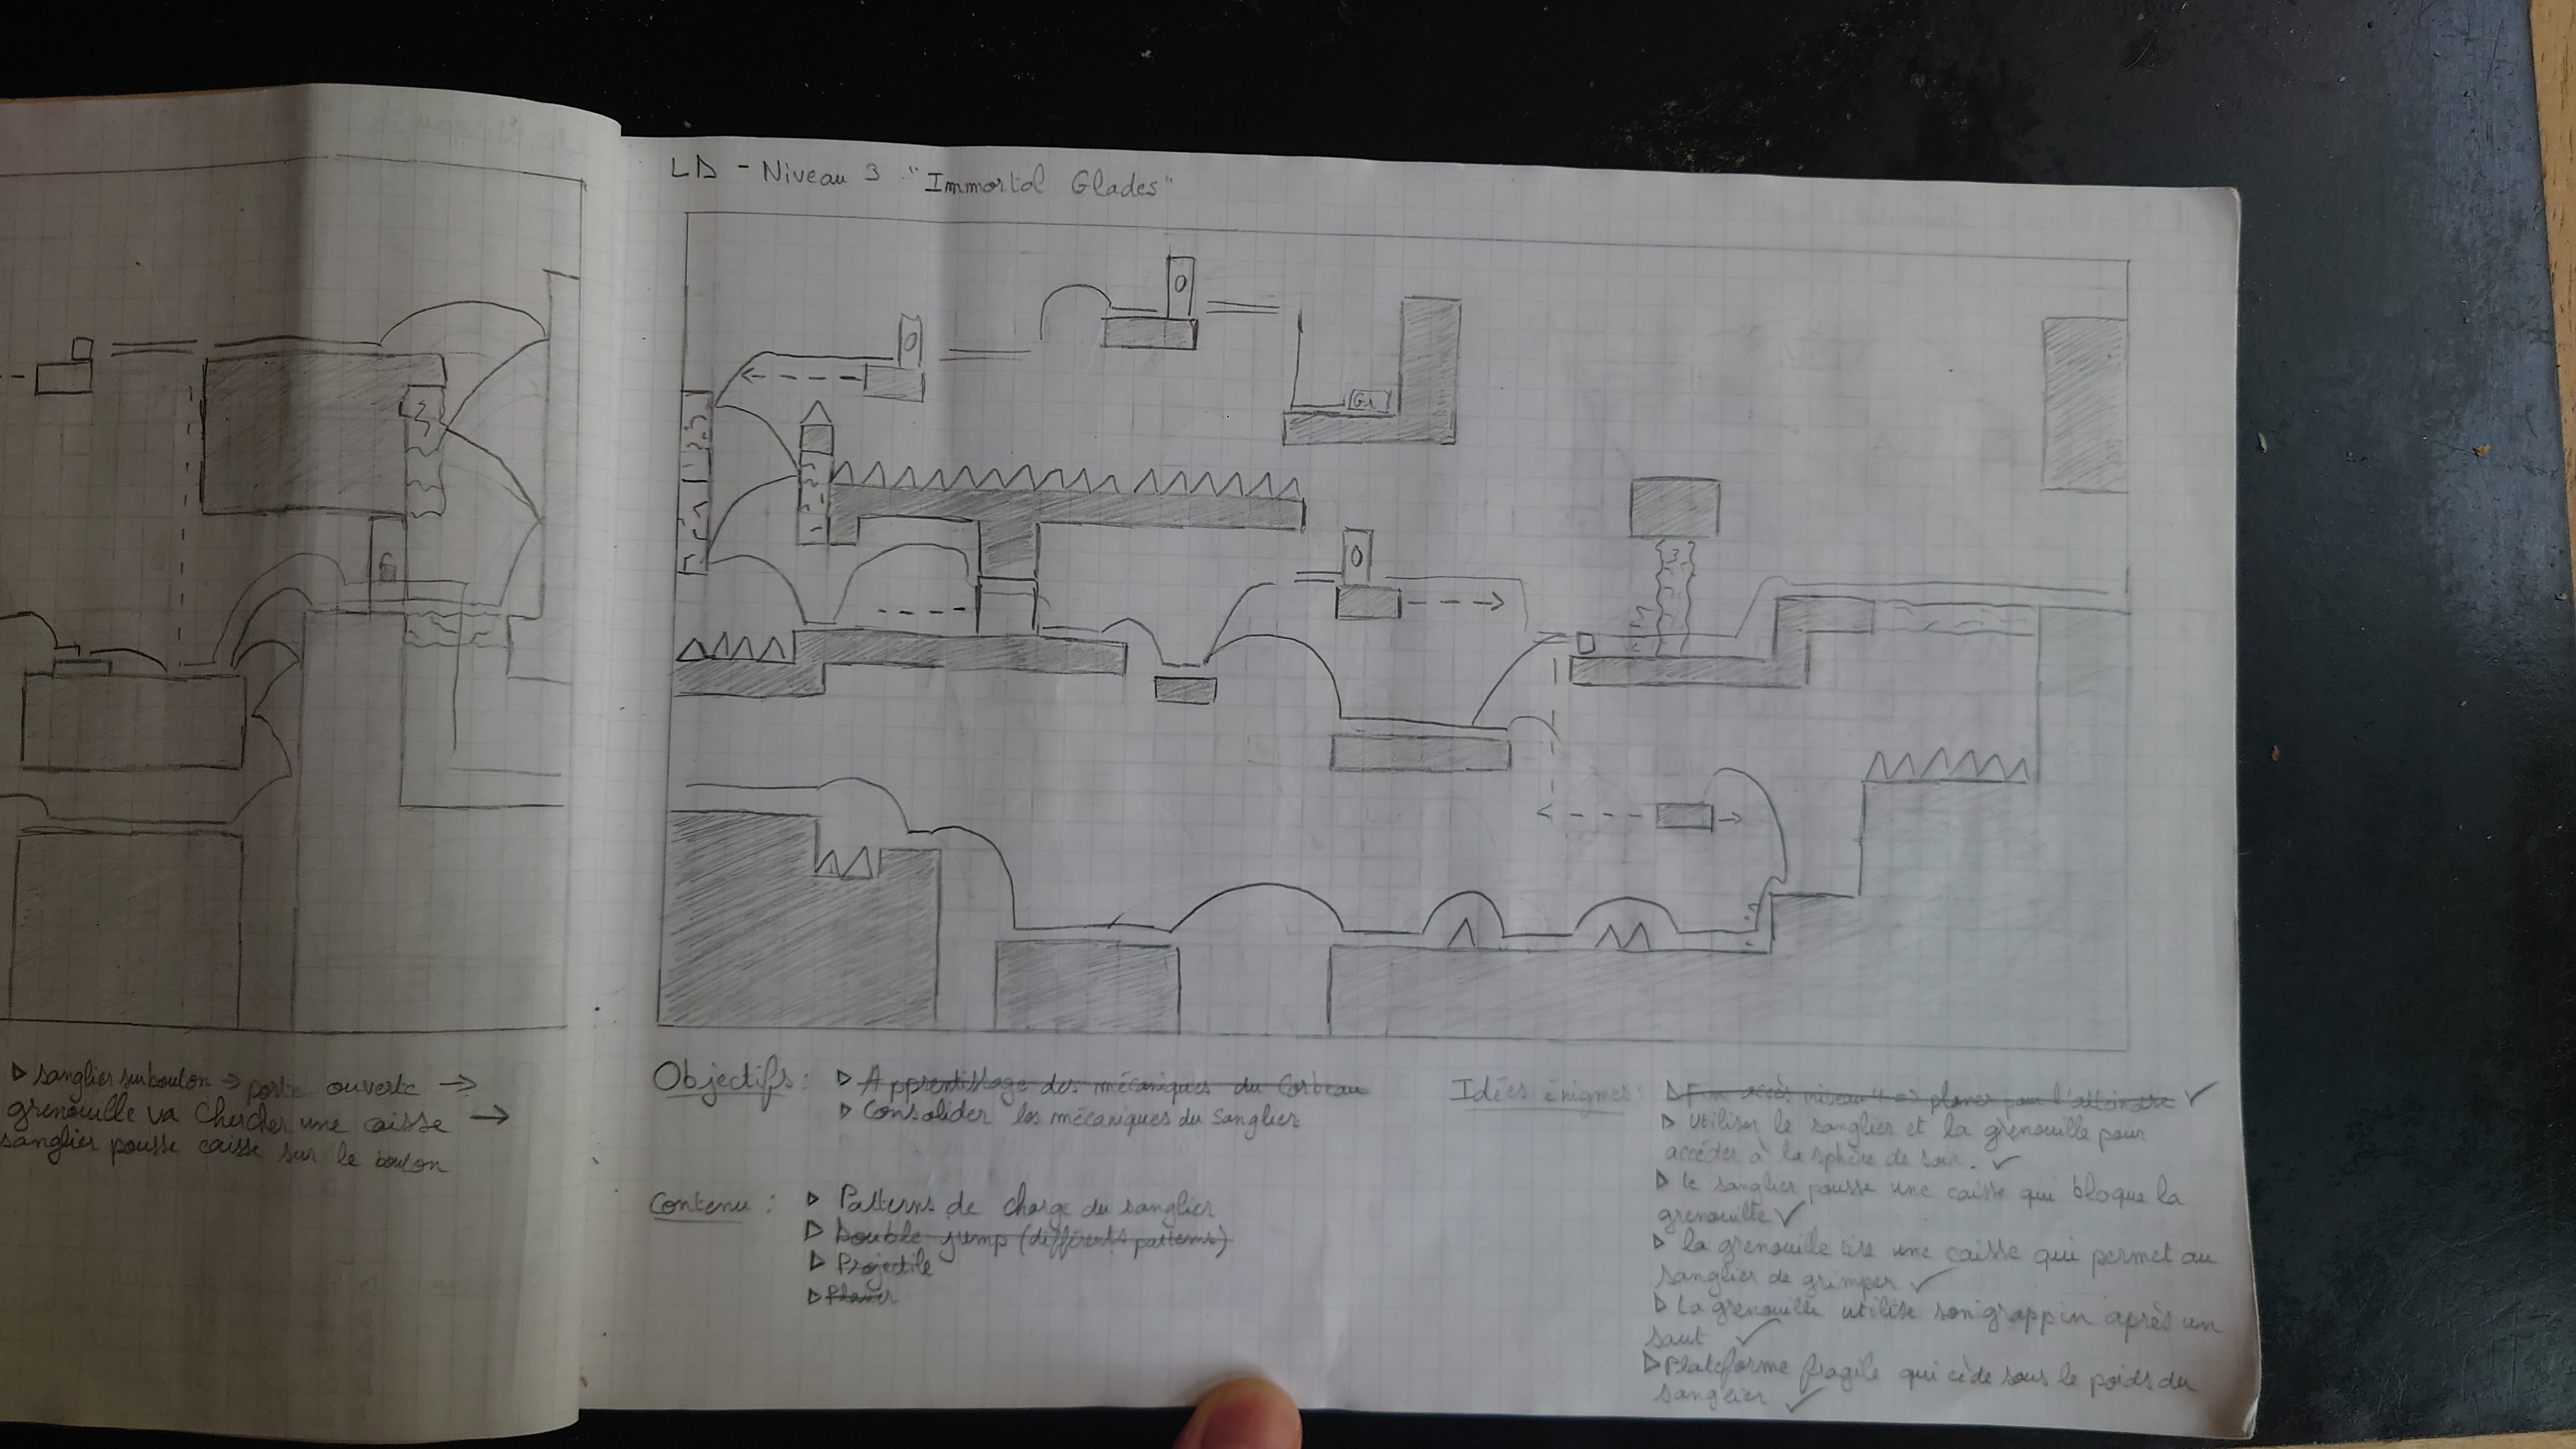 ▷ sanglier sur bouton → porte ouverte →
grenouille va chercher une caisse →
sanglier pousse caisse sur le bouton
G
LD - Niveau 3 "Immortal Glades"
O
O
O
G
Objectifs : ▷ Apprentissage des mécaniques du Corbeau
▷ Consolider les mécaniques du sanglier
Contenu : ▷ Patterns de charge du sanglier
▷ Double jump (différents patterns)
▷ Projectile
▷ Planer
Idées énigmes : ▷ Fin niveau planer pour l'atteindre ✓
▷ Utiliser le sanglier et la grenouille pour
accéder à la sphère de soin. ✓
▷ le sanglier pousse une caisse qui bloque la
grenouille ✓
▷ la grenouille tire une caisse qui permet au
sanglier de grimper ✓
▷ La grenouille utilise son grappin après un
saut ✓
▷ Plateforme fragile qui cède sous le poids du
sanglier ✓